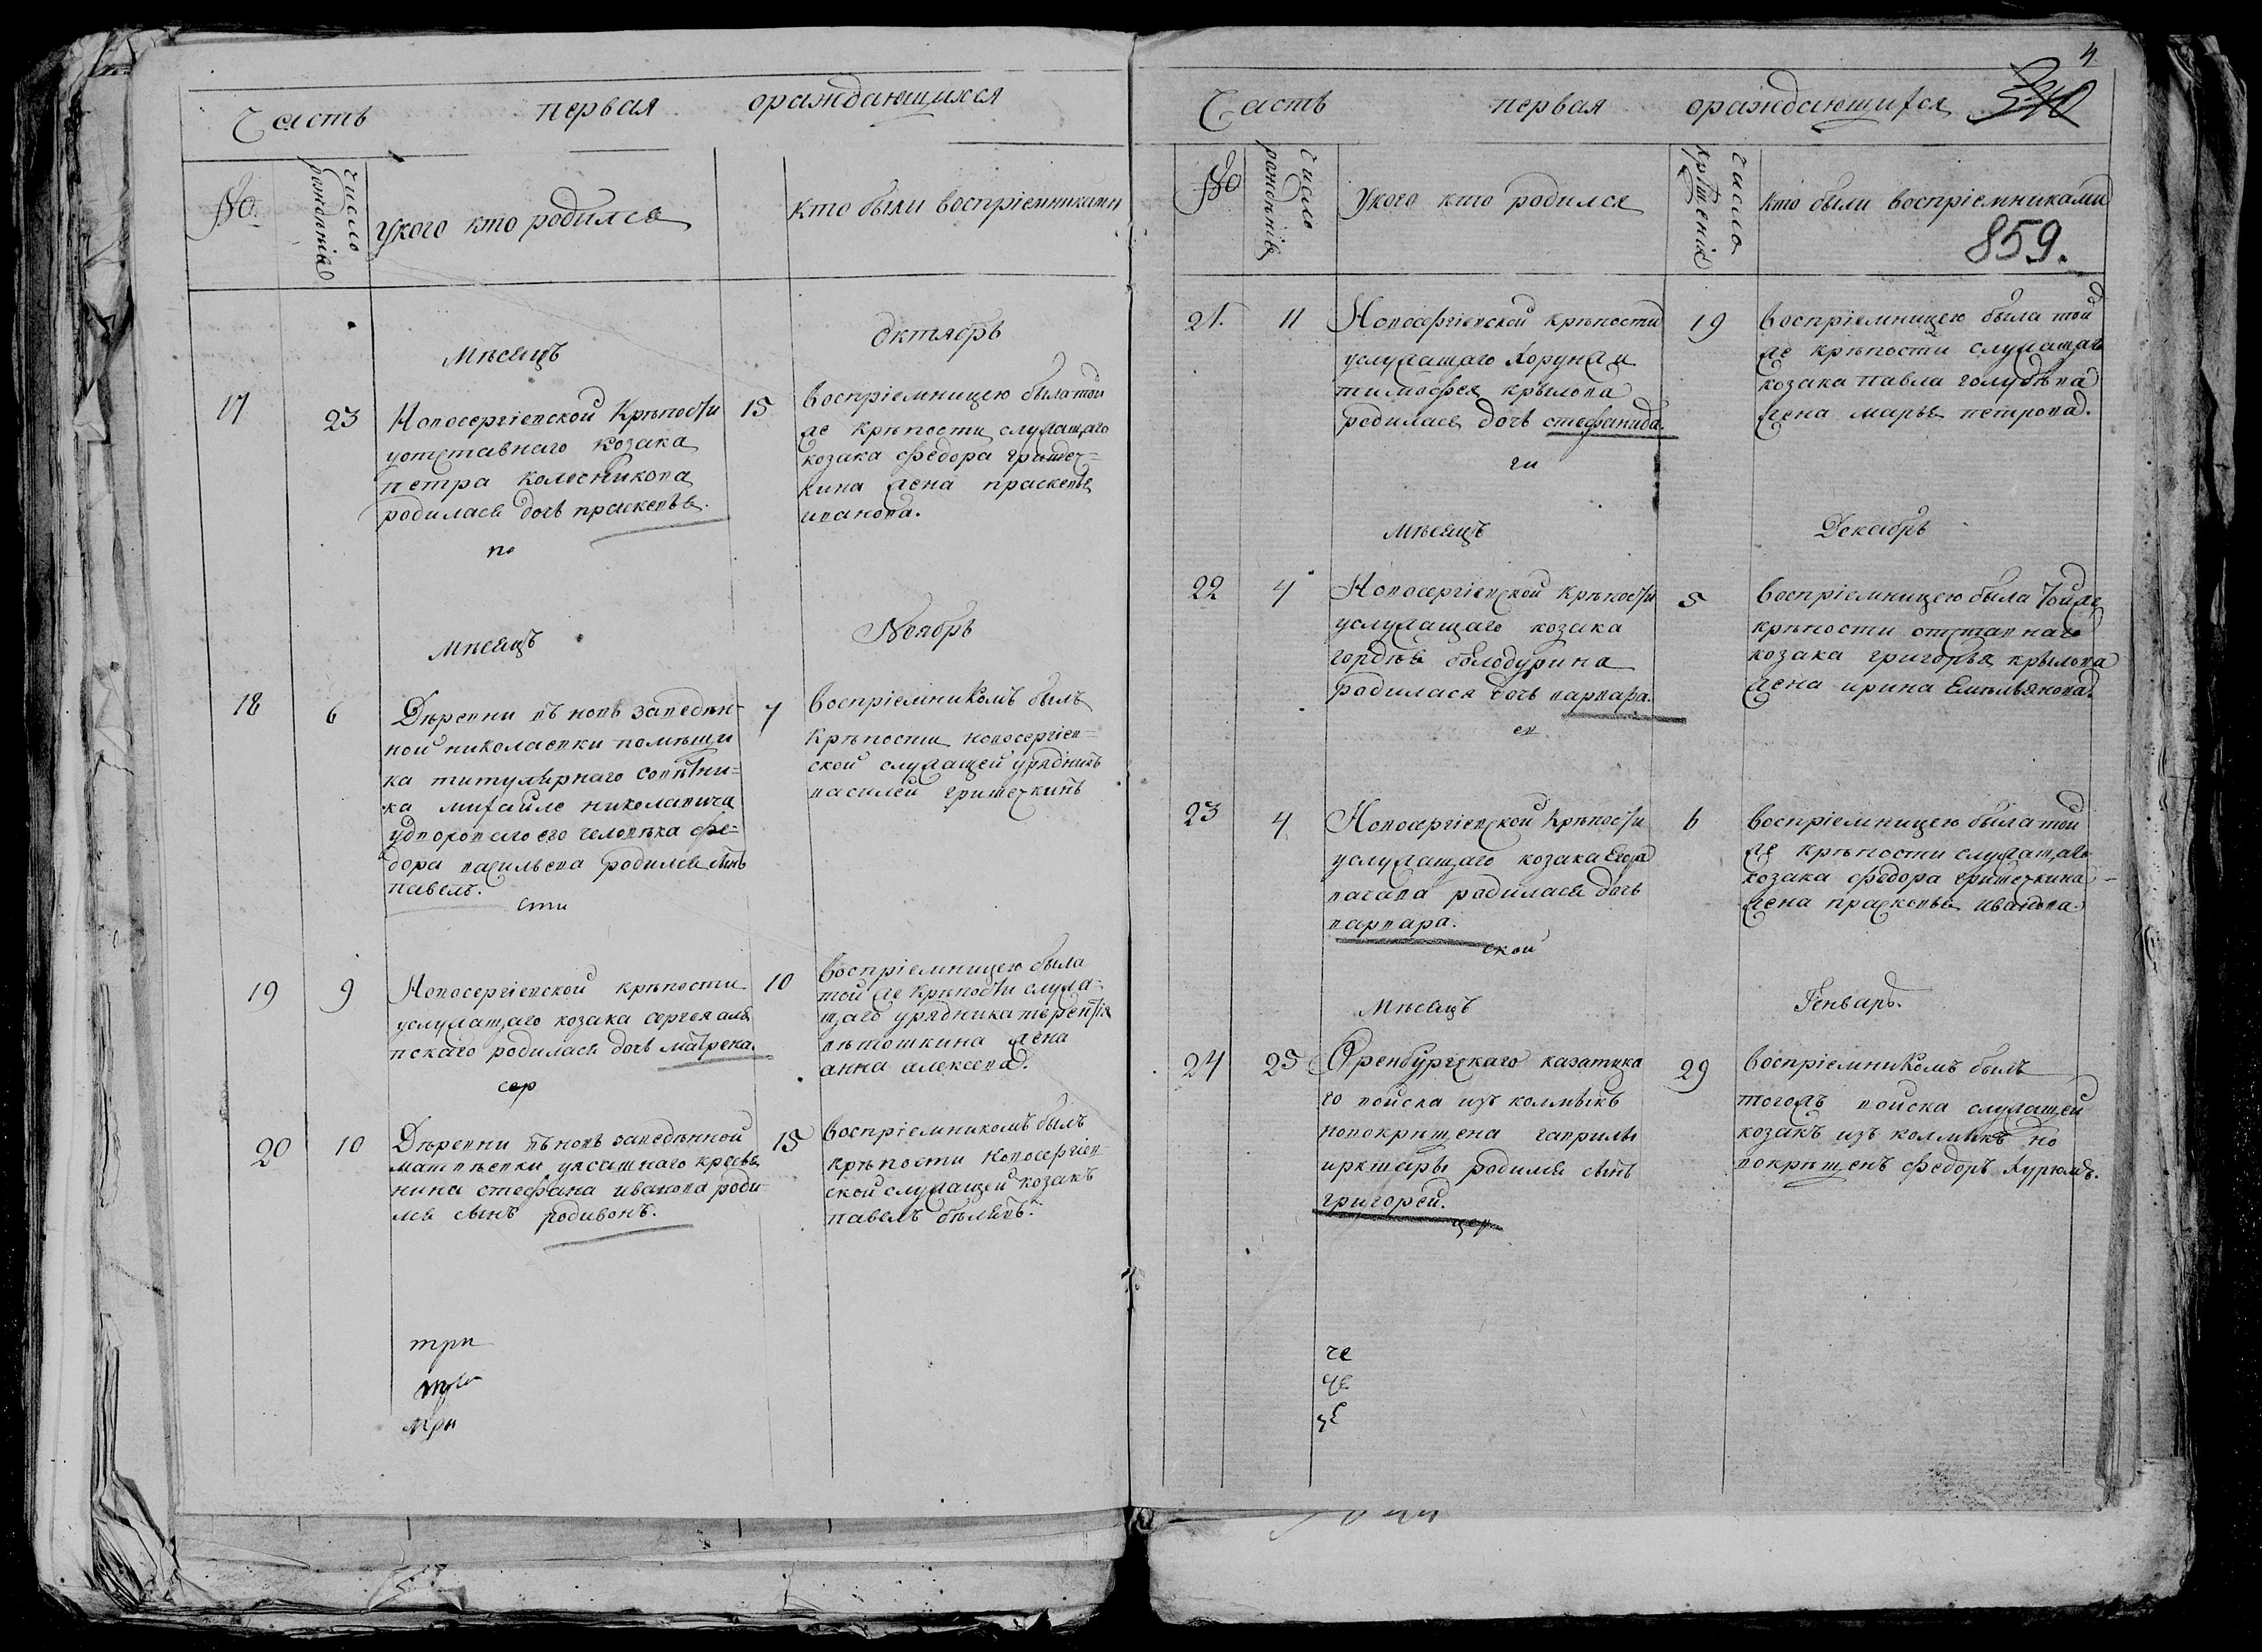 Часть первая ораждающихся
№
число рожденія
Укого кто родился
Кто были воспріемниками
Мѣсяцъ Октябрь
17
23
Новосергіевской Крѣпости
уотставнаго козака
петра Колесникова
родилася дочь прасковья.
по
15
Воспріемницею была той
же Крѣпости служащаго
козака федора гришеч=
кина жена прасковья
иванова.
Мѣсяцъ Ноябрь
18
6
Дѣревни въ новь заведѣн-
ной николаевки помѣщи
ка титулярнаго совѣтни=
ка михайле николавича
удворового его человѣка фе=
дора васильева родился сынъ
павелъ.
сти
7
Воспріемникомъ былъ
Крѣпости новосергіев=
ской служащей урядникъ
василей гришечкинъ
19
9
Новосергіевской крѣпости
услужащаго козака сергея аля
вскаго родилася дочь матрена.
сер
10
Воспріемницею была
той же Крѣпости служа-
щаго урядника терентія
вѣтошкина жена
анна алексева.
20
10
Дѣревни въ новь заведѣнной
матвѣевки уясашнаго кресья
нина стефана иванова роди
лся сынъ родивонъ.
15
Воспріемникомъ былъ
крѣпости Новосергіев-
ской служащей козакъ
павелъ бѣляевъ.
три
три
4
Часть первая ораждающихся
№
число рожденія
Укого кто родился
число крещенія
Кто были воспріемниками
859.
21.
11
Новосергіевской крѣпости
услужащаго Хорунжи
тимофея крылова
родилася дочь стефанида.
ги
19
Воспріемницею была той
же крѣпости служащаго
козака павла голубѣва
жена марья петрова.
Мѣсяцъ Декабрь
22
4
Новосергіевской Крѣпости
услужащаго козака
гордѣя болодурина
родилася дочь варвара.
ев
5
Воспріемницею была тойже
крѣпости отставнаго
козака григорья крылова
жена ирина Емельянова.
23
4
Новосергіевской Крѣпости
услужащаго козака Егора
вагапа родилася дочь
варвара.
ской
6
Воспріемницею была той
же крѣпости служащаго
козака федора гришечкина
жена прасковья иванова.
Мѣсяцъ Генварь.
24
25
Оренбургскаго казатцка
го войска изъ колмыкъ
новокрѣщена гаврилы
иркшары родился сынъ
григорей.
цер
29
Воспріемникомъ былъ
тогожъ войска служащей
козакъ изъ колмыкъ но
вокрѣщенъ федоръ Хурюмъ.
че
че
че